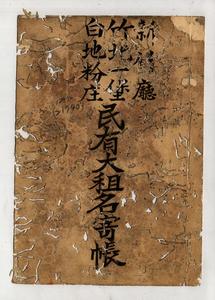 新竹廳
竹北一堡
白地粉庄
民有大租名寄帳